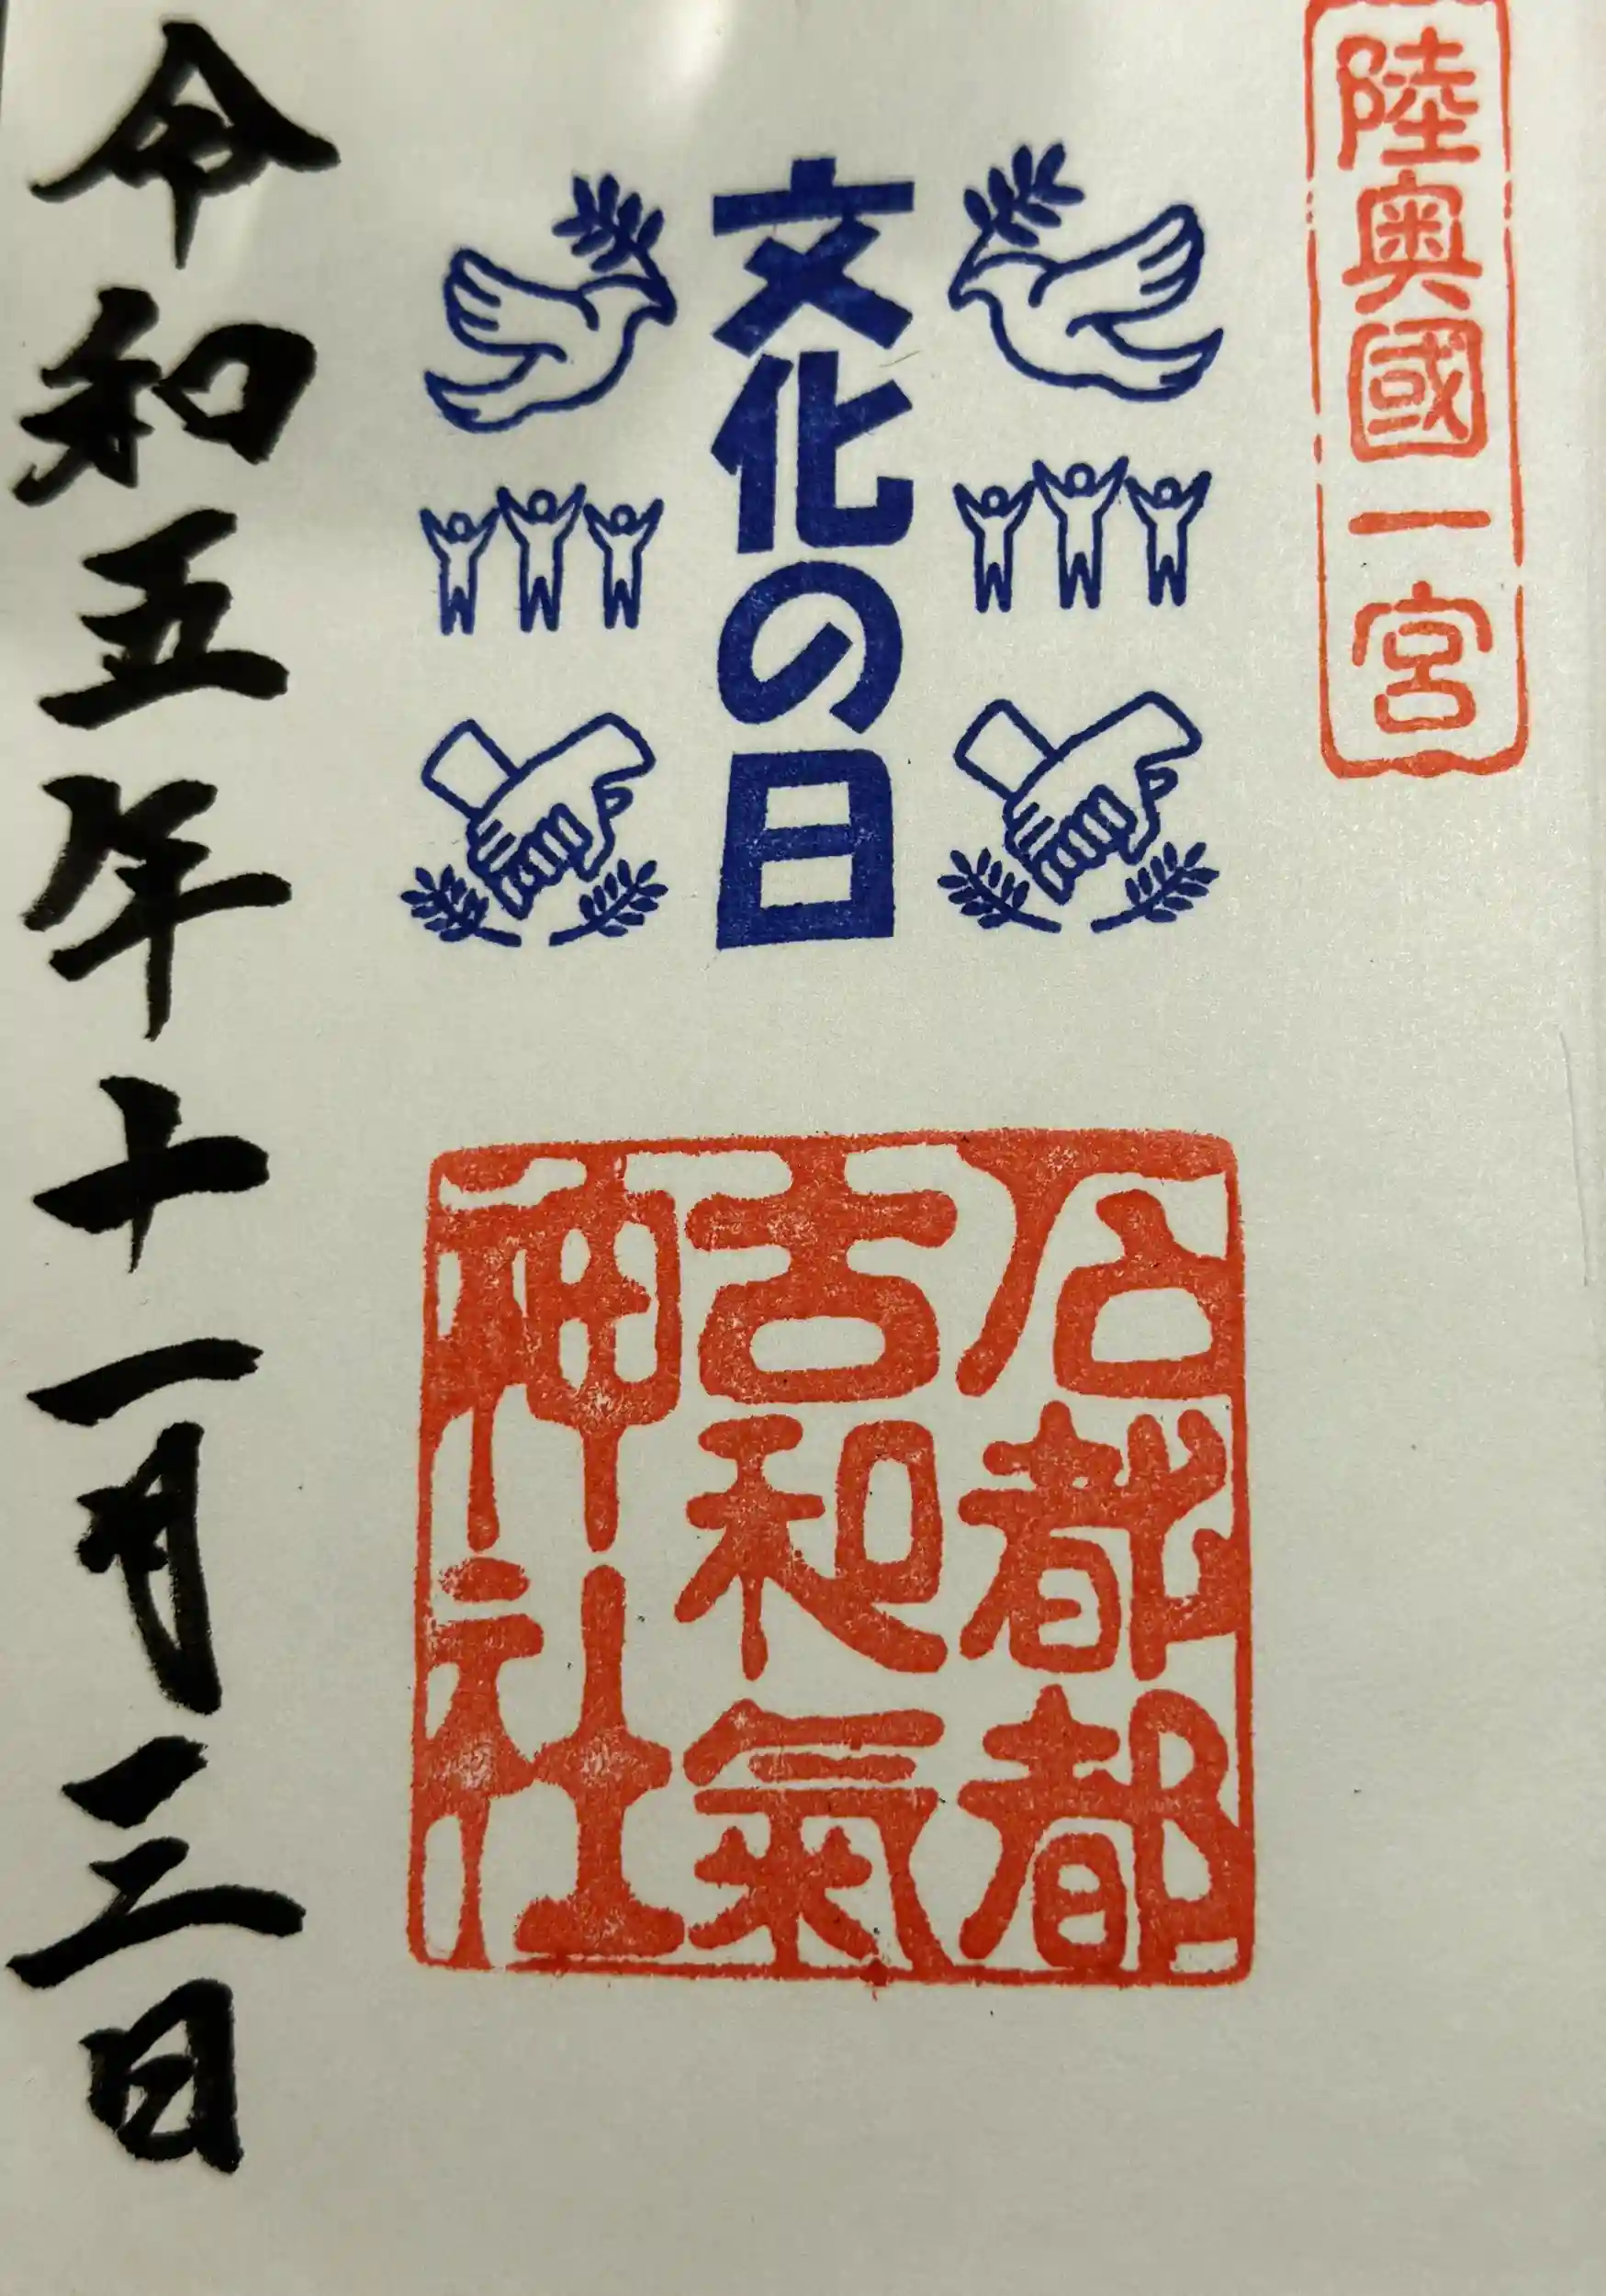 陸奥國一宮
文化の日
石都都
古和氣
神社
令和五年十一月三日